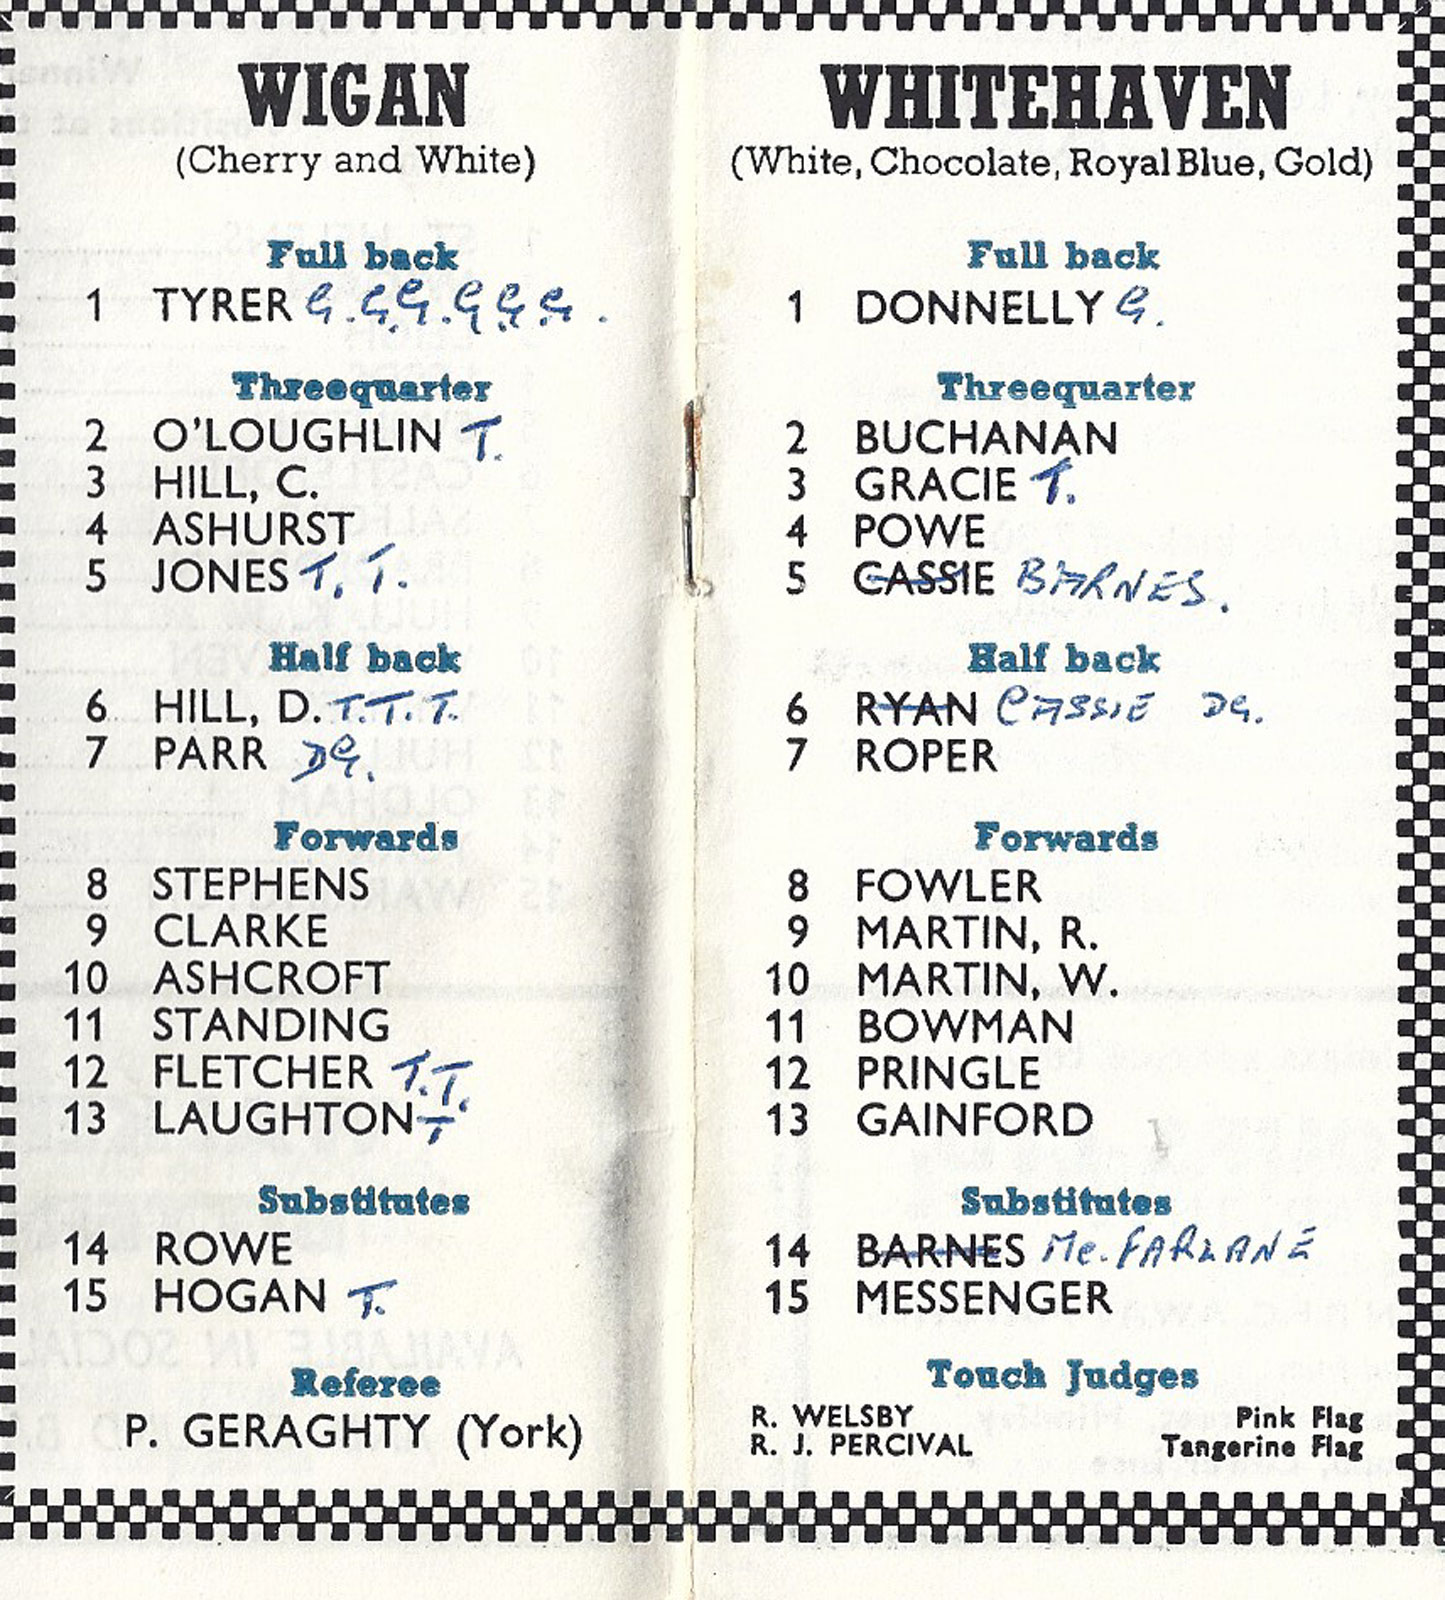 WIGAN
(Cherry and White)
Full back
1 TYRER G. G. G. G. G. G.
Threequarter
2 O'LOUGHLIN T.
3 HILL, C.
4 ASHURST
5 JONES T, T.
Half back
6 HILL, D. T. T. T.
7 PARR DG.
Forwards
8 STEPHENS
9 CLARKE
10 ASHCROFT
11 STANDING
12 FLETCHER T. T.
13 LAUGHTON T
Substitutes
14 ROWE
15 HOGAN T.
Referee
P. GERAGHTY (York)
WHITEHAVEN
(White, Chocolate, Royal Blue, Gold)
Full back
1 DONNELLY G.
Threequarter
2 BUCHANAN
3 GRACIE T.
4 POWE
5 CASSIE BARNES.
Half back
6 RYAN CASSIE DG.
7 ROPER
Forwards
8 FOWLER
9 MARTIN, R.
10 MARTIN, W.
11 BOWMAN
12 PRINGLE
13 GAINFORD
Substitutes
14 BARNES Mc. FARLANE
15 MESSENGER
Touch Judges
R. WELSBY Pink Flag
R. J. PERCIVAL Tangerine Flag